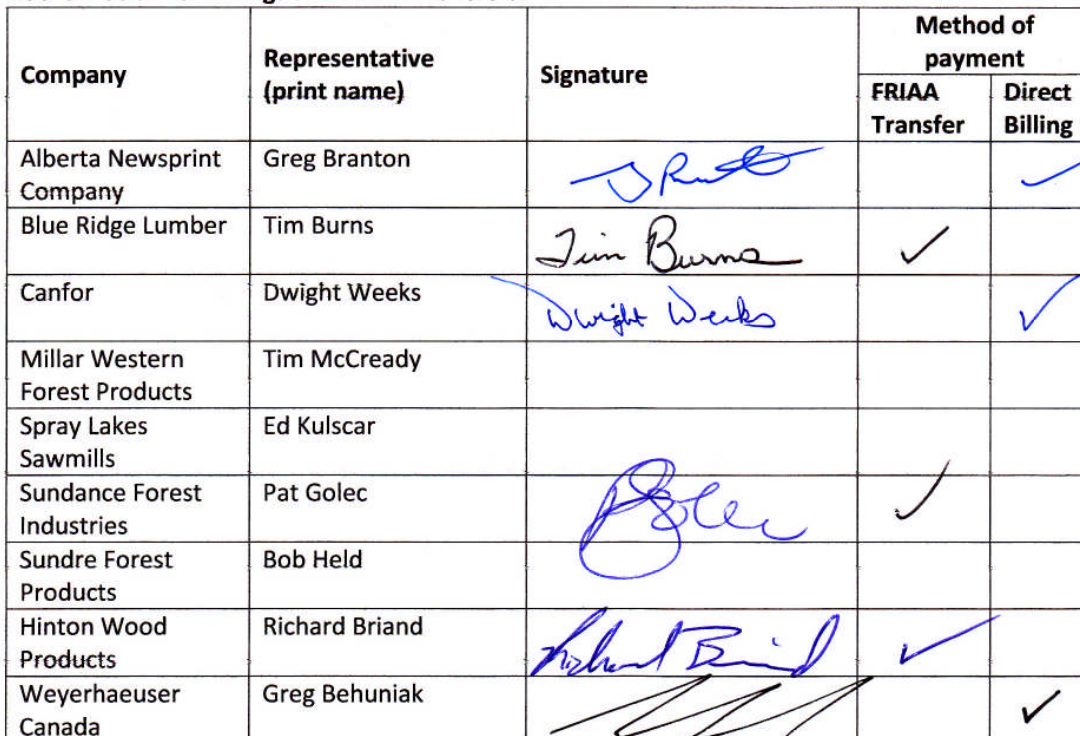 Method of
payment
Company
Representative
(print name)
Signature
FRIAA
Transfer
Direct
Billing
Alberta Newsprint
Company
Greg Branton
✓
Blue Ridge Lumber
Tim Burns
Tim Burns
✓
Canfor
Dwight Weeks
Dwight Weeks
✓
Millar Western
Forest Products
Tim McCready
Spray Lakes
Sawmills
Ed Kulscar
Sundance Forest
Industries
Pat Golec
PGolec
✓
Sundre Forest
Products
Bob Held
Hinton Wood
Products
Richard Briand
Richard Briand
✓
Weyerhaeuser
Canada
Greg Behuniak
✓